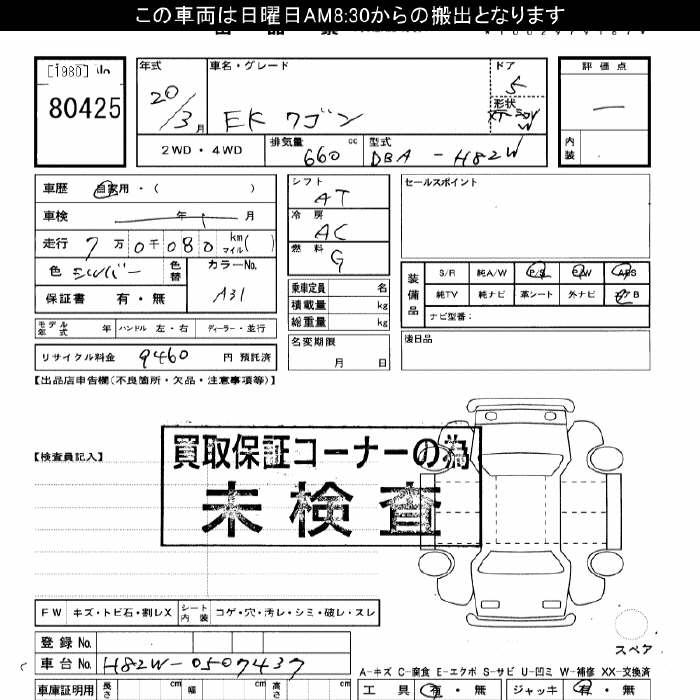 この車両は日曜日AM8:30からの搬出となります
[1980]
80425
年式
車名・グレード
ドア
評価点
20/3月
EK ワゴン
5
形状
W
2WD・4WD
排気量 660 cc
型式 DBA-H82W
内装
車歴 自家用・( )
シフト AT
セールスポイント
車検 年 月
冷房 AC
走行 7万0千080 km マイル( )
燃料 G
色 シルバー
色替
カラーNo. A31
保証書 有・無
乗車定員 名
積載量 kg
総重量 kg
装備品
S/R 純A/W P/S P/W ABS
純TV 純ナビ 革シート 外ナビ エアB
ナビ型番:
モデル年式 年 ハンドル 左・右 ディーラー・並行
名変期限 月 日
後日品
リサイクル料金 9460 円 預託済
【出品店申告欄(不良箇所・欠品・注意事項等)】
【検査員記入】
買取保証コーナーの為
未検査
FW キズ・トビ石・割レX
シート内装 コゲ・穴・汚レ・シミ・破レ・スレ
スペア
登録No.
車台No. H82W-0507437
A-キズ C-腐食 E-エクボ S-サビ U-凹ミ W-補修 XX-交換済
車庫証明用 長さ cm 幅 cm 高さ cm
工具 有・無 ジャッキ 有・無